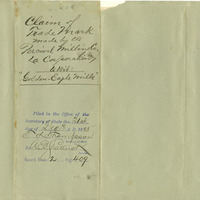 Claim of
Trade Mark
made by the
Percival Milling Co.
(a Corporation)
to wit:
"Golden Eagle Mills"
Filed in the Office of the
Secretary of State the 21st
day of A.D. 18
Book 2 Pg 409